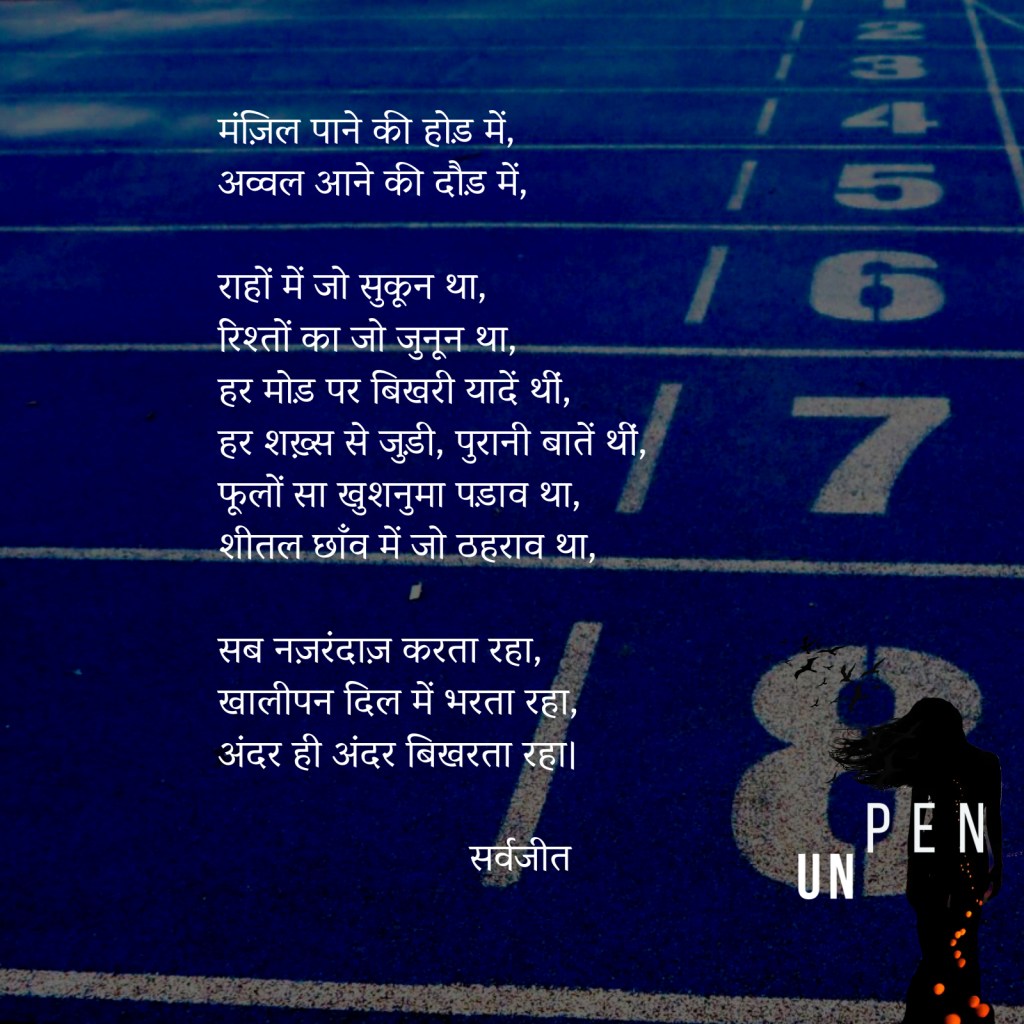 मंज़िल पाने की होड़ में,
अव्वल आने की दौड़ में,
राहों में जो सुकून था,
रिश्तों का जो जुनून था,
हर मोड़ पर बिखरी यादें थीं,
हर शख़्स से जुड़ी, पुरानी बातें थीं,
फूलों सा खुशनुमा पड़ाव था,
शीतल छाँव में जो ठहराव था,
सब नज़रंदाज़ करता रहा,
खालीपन दिल में भरता रहा,
अंदर ही अंदर बिखरता रहा।
सर्वजीत
2
3
4
5
6
7
8
PEN
UN